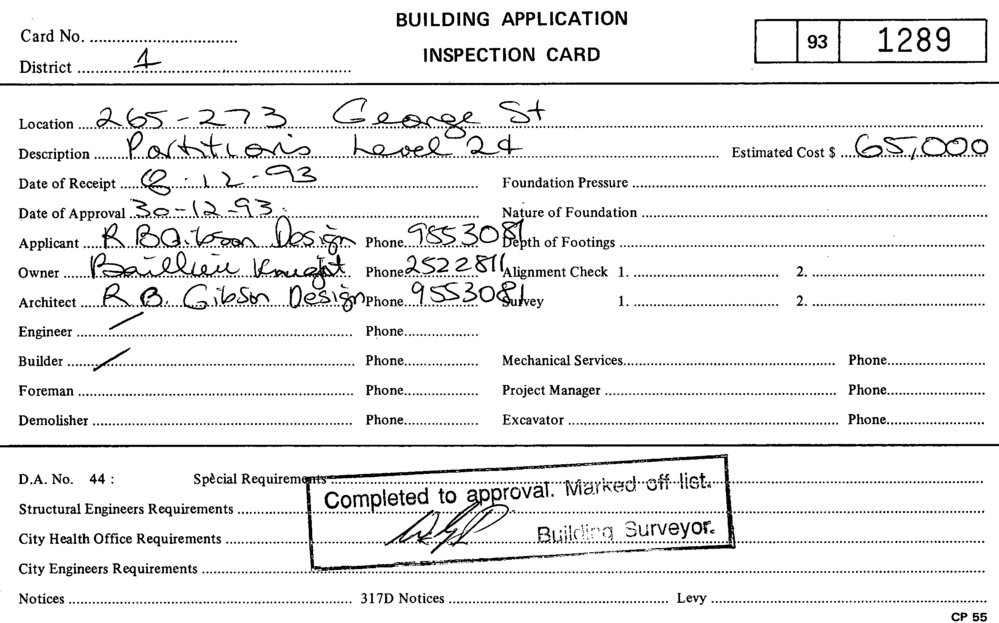 BUILDING APPLICATION
INSPECTION CARD
Card No.
93 1289
District 1
Location 265-273 George St
Description Partitions Level 24 Estimated Cost $ 65,000
Date of Receipt 8-12-93 Foundation Pressure
Date of Approval 30-12-93. Nature of Foundation
Applicant R B Gibson Design Phone 9553081 Depth of Footings
Owner Baillieu Knight Phone 2522811 Alignment Check 1. 2.
Architect R B. Gibson Design Phone 9553081 Survey 1. 2.
Engineer / Phone
Builder / Phone Mechanical Services Phone
Foreman Phone Project Manager Phone
Demolisher Phone Excavator Phone
D.A. No. 44 : Special Requirements
Completed to approval. Marked off list.
Structural Engineers Requirements
City Health Office Requirements Building Surveyor.
City Engineers Requirements
Notices 317D Notices Levy
CP 55